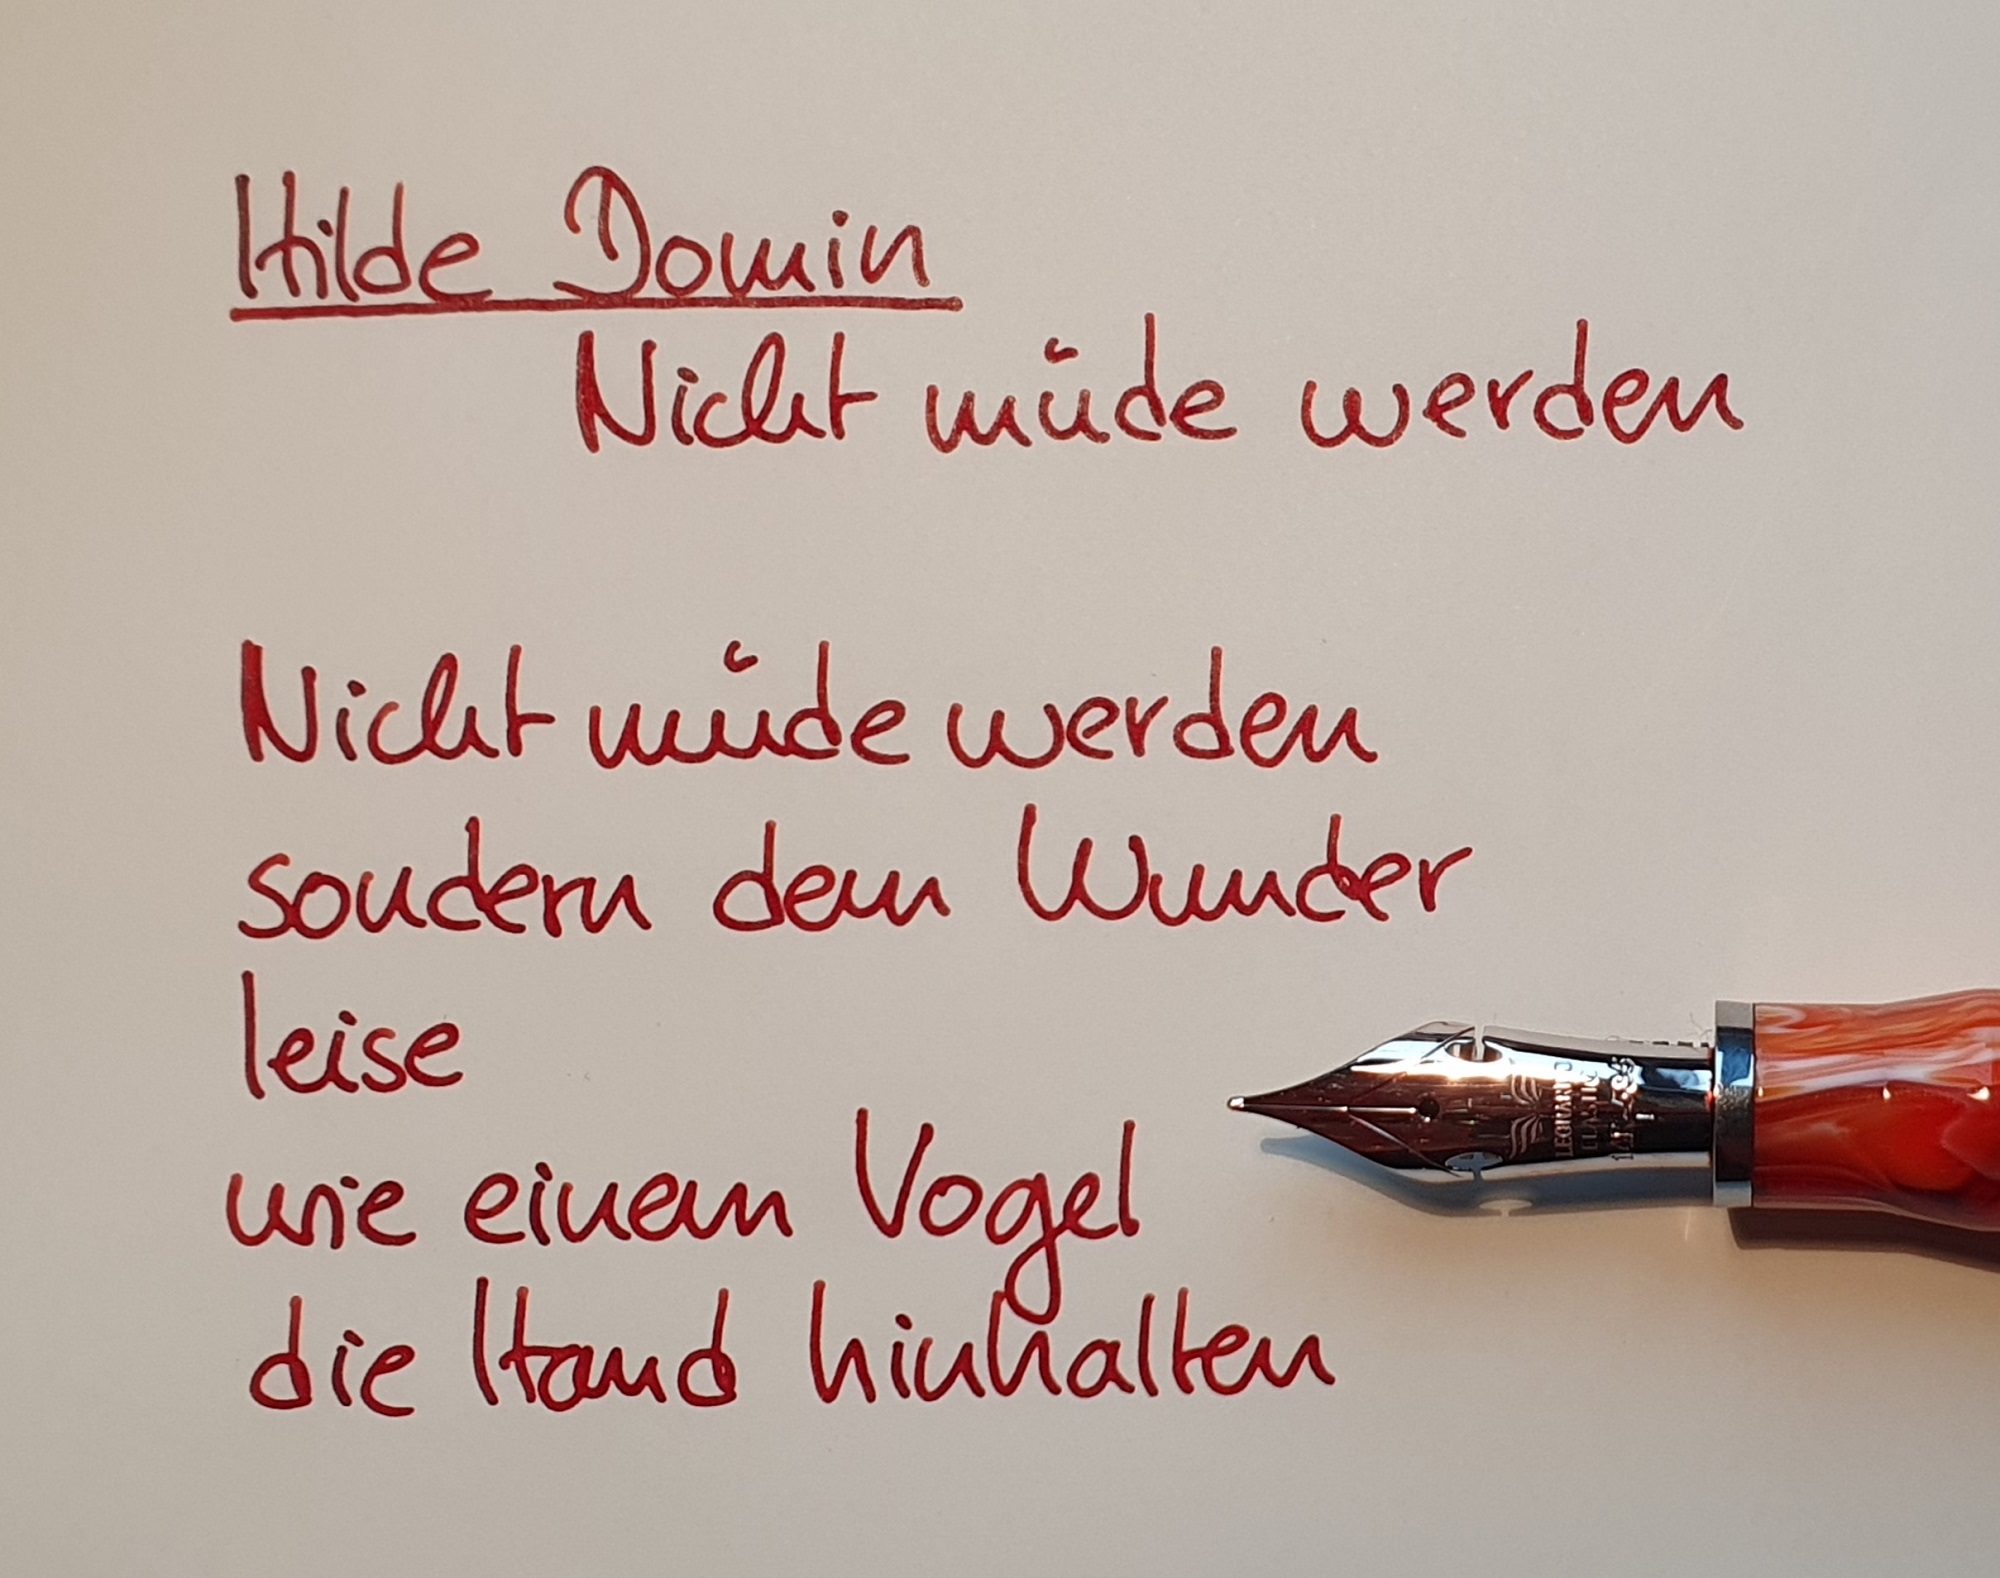 Hilde Domin
Nicht müde werden
Nicht müde werden
sondern dem Wunder
leise
wie einem Vogel
die Hand hinhalten